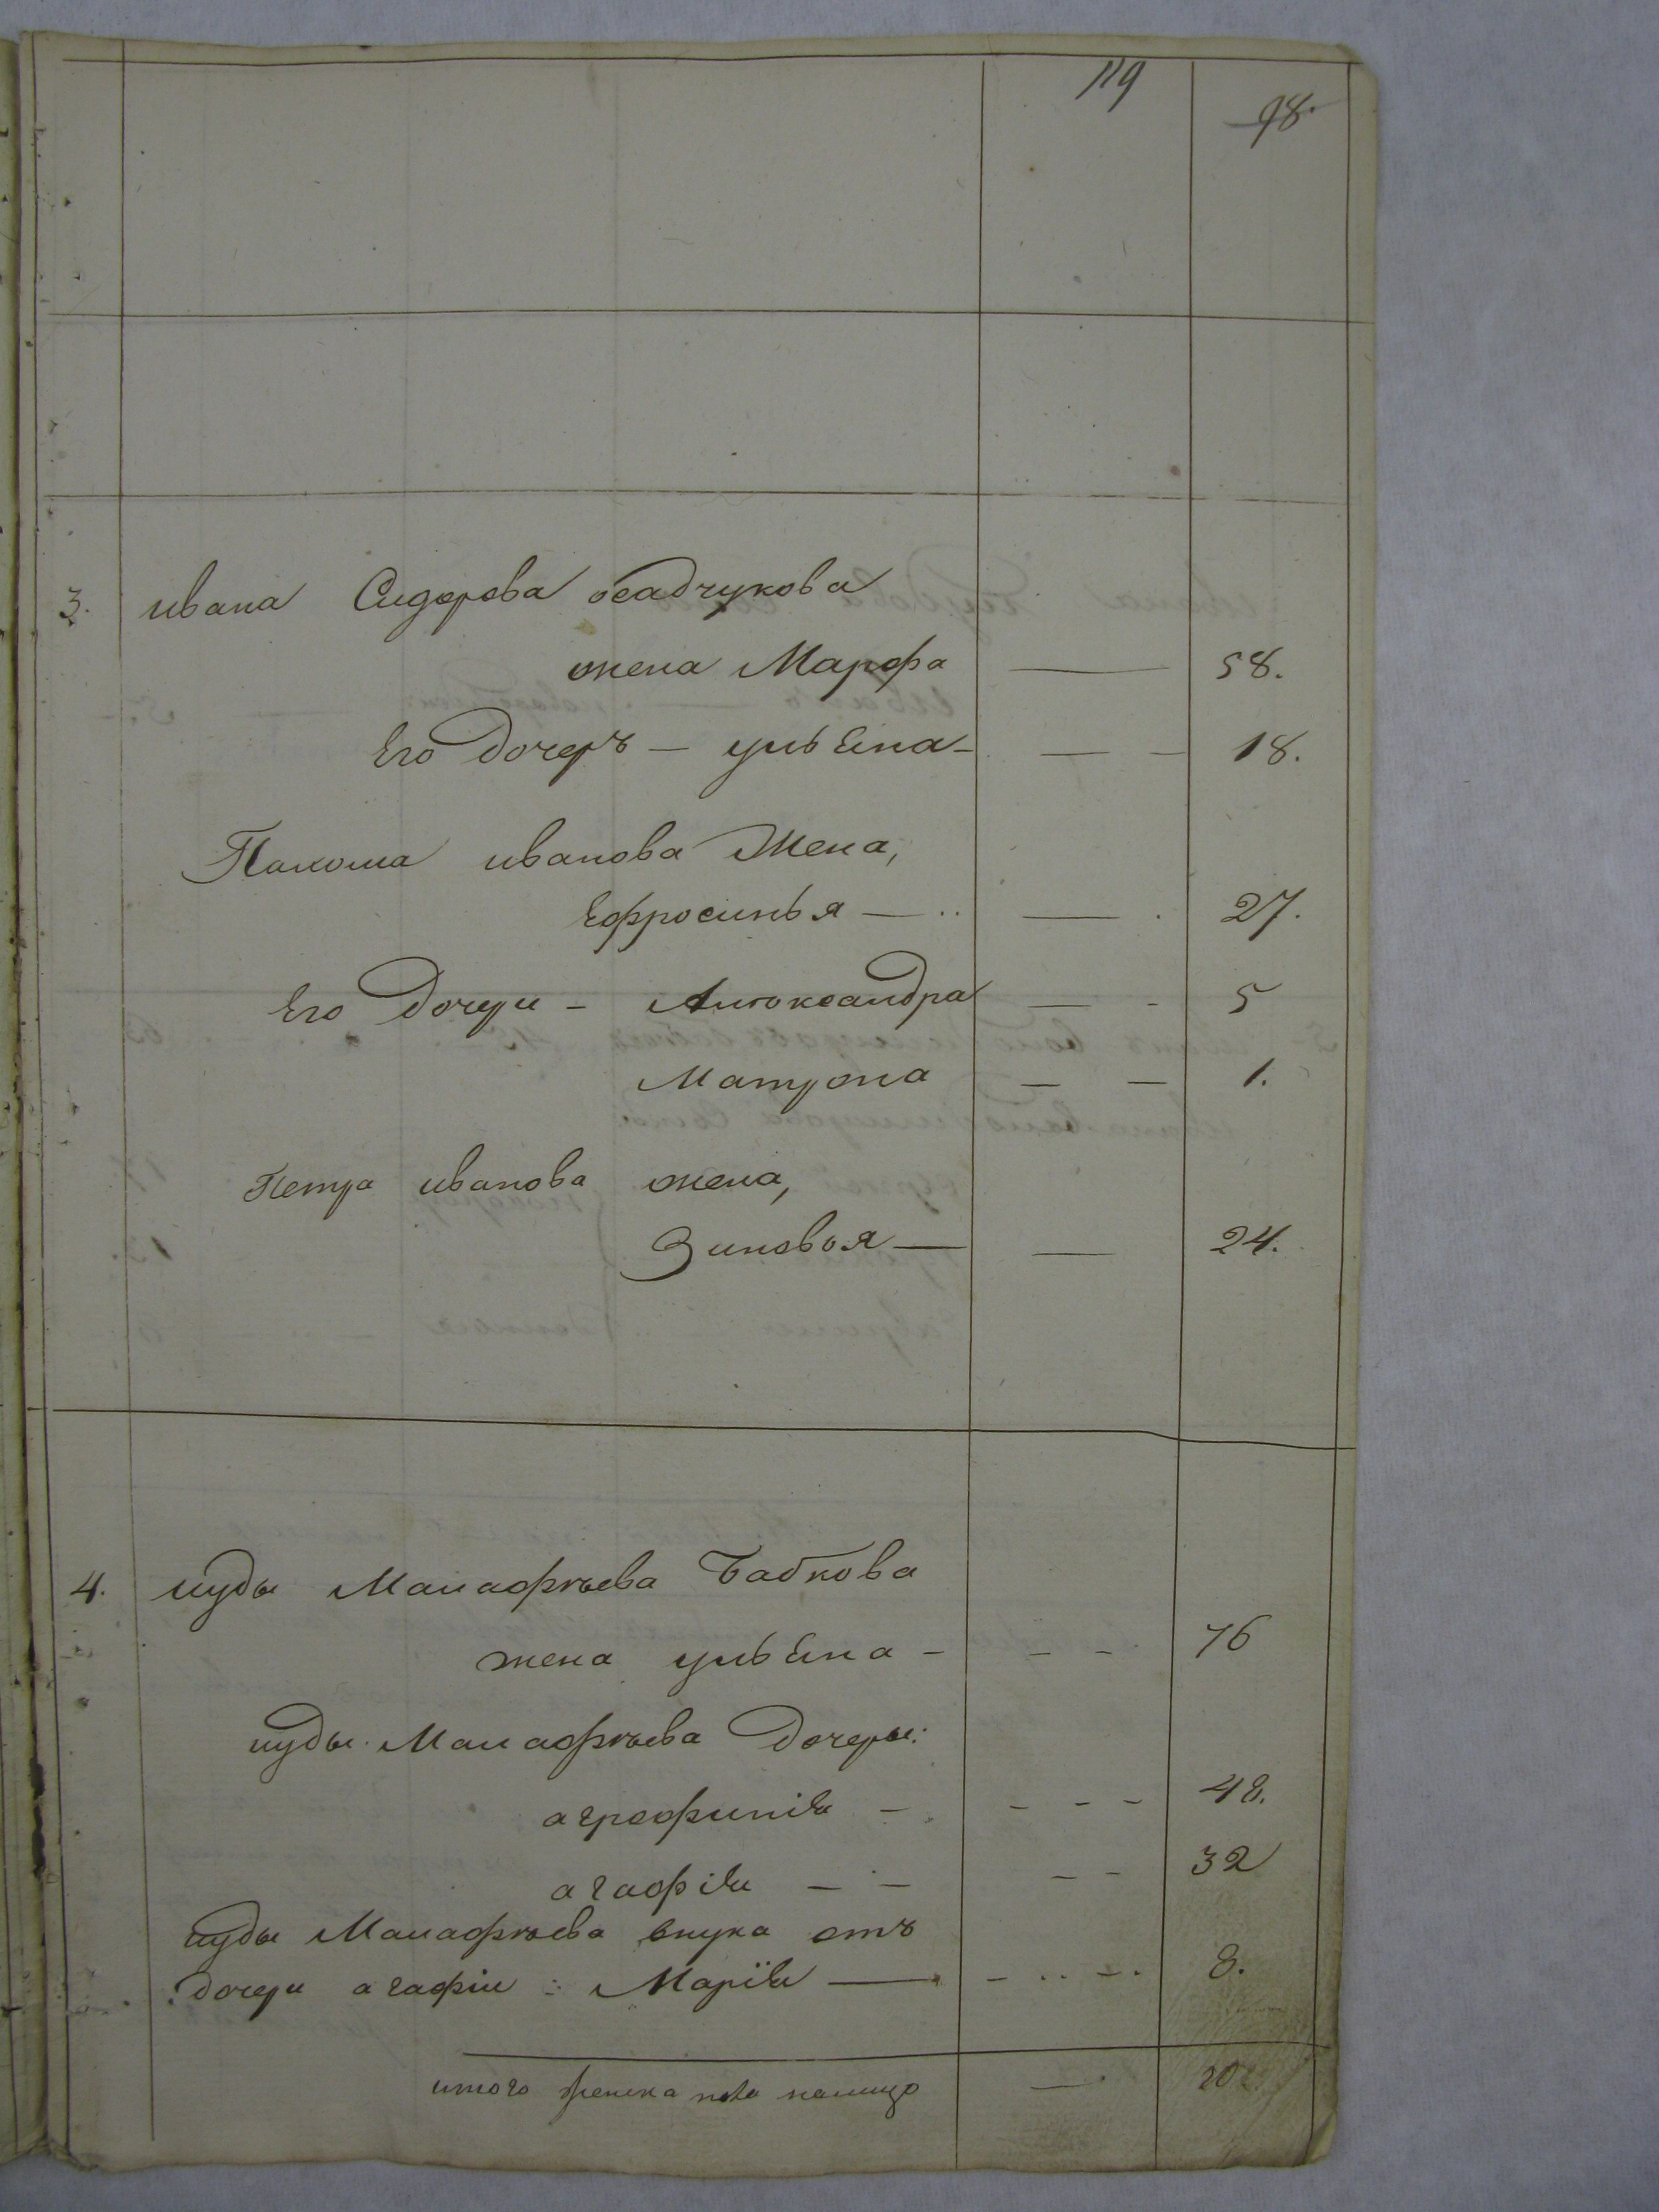 119
98.
3. ивана Сидорова осадчукова
жена Марфа — 58.
Его дочеръ — ульяна — — — 18.
иванова Жена,
Ефросинья — — . 27.
Его дочери — Алюксандра — - 5
Матрона — — 1.
Петра иванова жена,
Зиновья — — 24.
4. иуды Малафѣева Бабкова
жена ульяна - - - 76
иуды Малафѣева дочеры:
- - - - 48.
агафія — — - - 32
иуды Малафѣева внука отъ
дочери агафіи : Марія — - .. -. 8.
итого женска пола налицо — 10